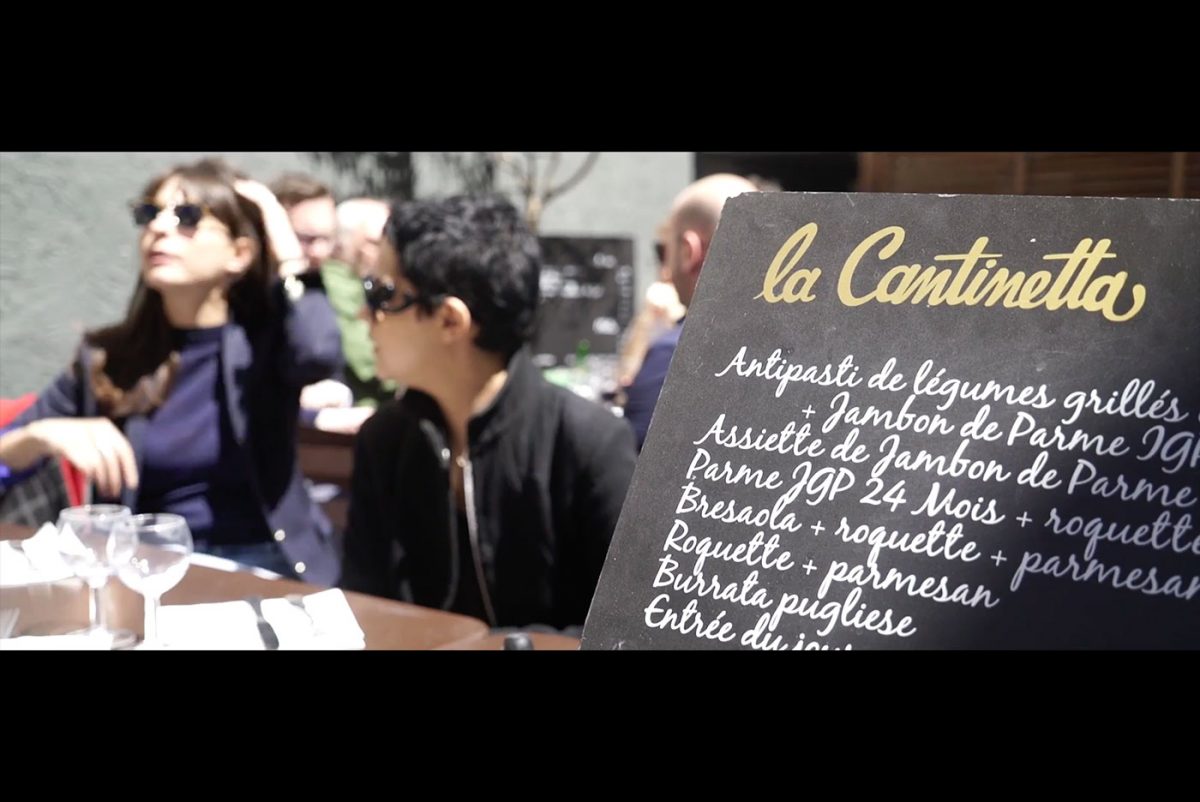 la Cantinetta
Antipasti de légumes grillés
+ Jambon de Parme IGP
Assiette de Jambon de Parme
Parme IGP 24 Mois + roquette
Bresaola + roquette + parmesan
Roquette + parmesan
Burrata pugliese
Entrée du jour